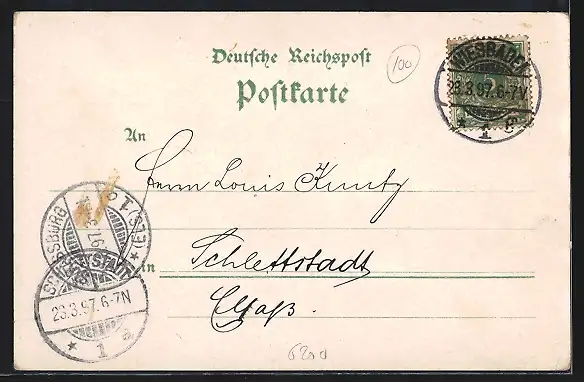 Deutsche Reichspost
100
Postkarte
WIESBADEN
23.3.97. 6-7V.
* 1 g
5
An
Herrn Louis Kuntz
in Schlettstadt
Elsaß.
STRASSBURG
(ELS.)
23.3.97. 6-7N
* 1 a